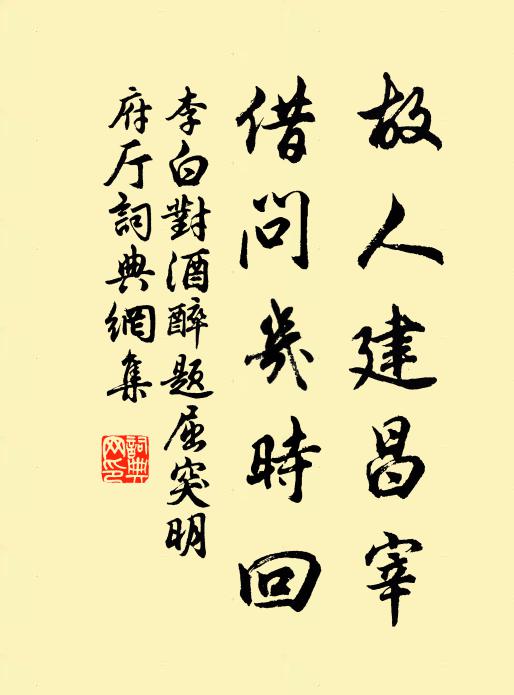 故人建昌宰
借問幾時回
李白對酒醉題屈突明
府厅詞典網集
詞典
网印